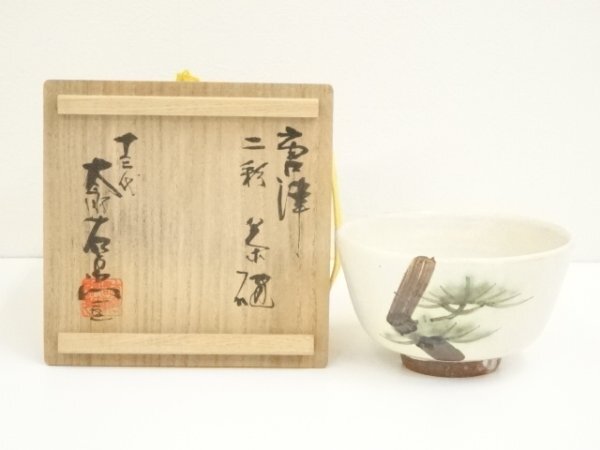 唐津
二彩 茶碗
十三代
太郎右衛門 造